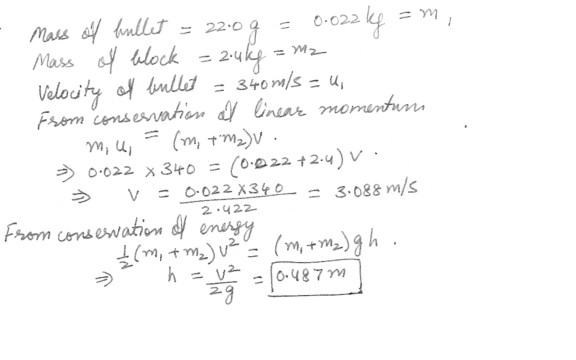 Mass of bullet = 22.0 g = 0.022 kg = m₁
Mass of block = 2.4 kg = m₂
Velocity of bullet = 340 m/s = u₁
From conservation of linear momentum
m₁ u₁ = (m₁ + m₂) v .
⇒ 0.022 × 340 = (0.022 + 2.4) v .
⇒ v = 0.022 × 340 / 2.422 = 3.088 m/s
From conservation of energy
½ (m₁ + m₂) v² = (m₁ + m₂) g h .
⇒ h = v² / 2g = 0.487 m